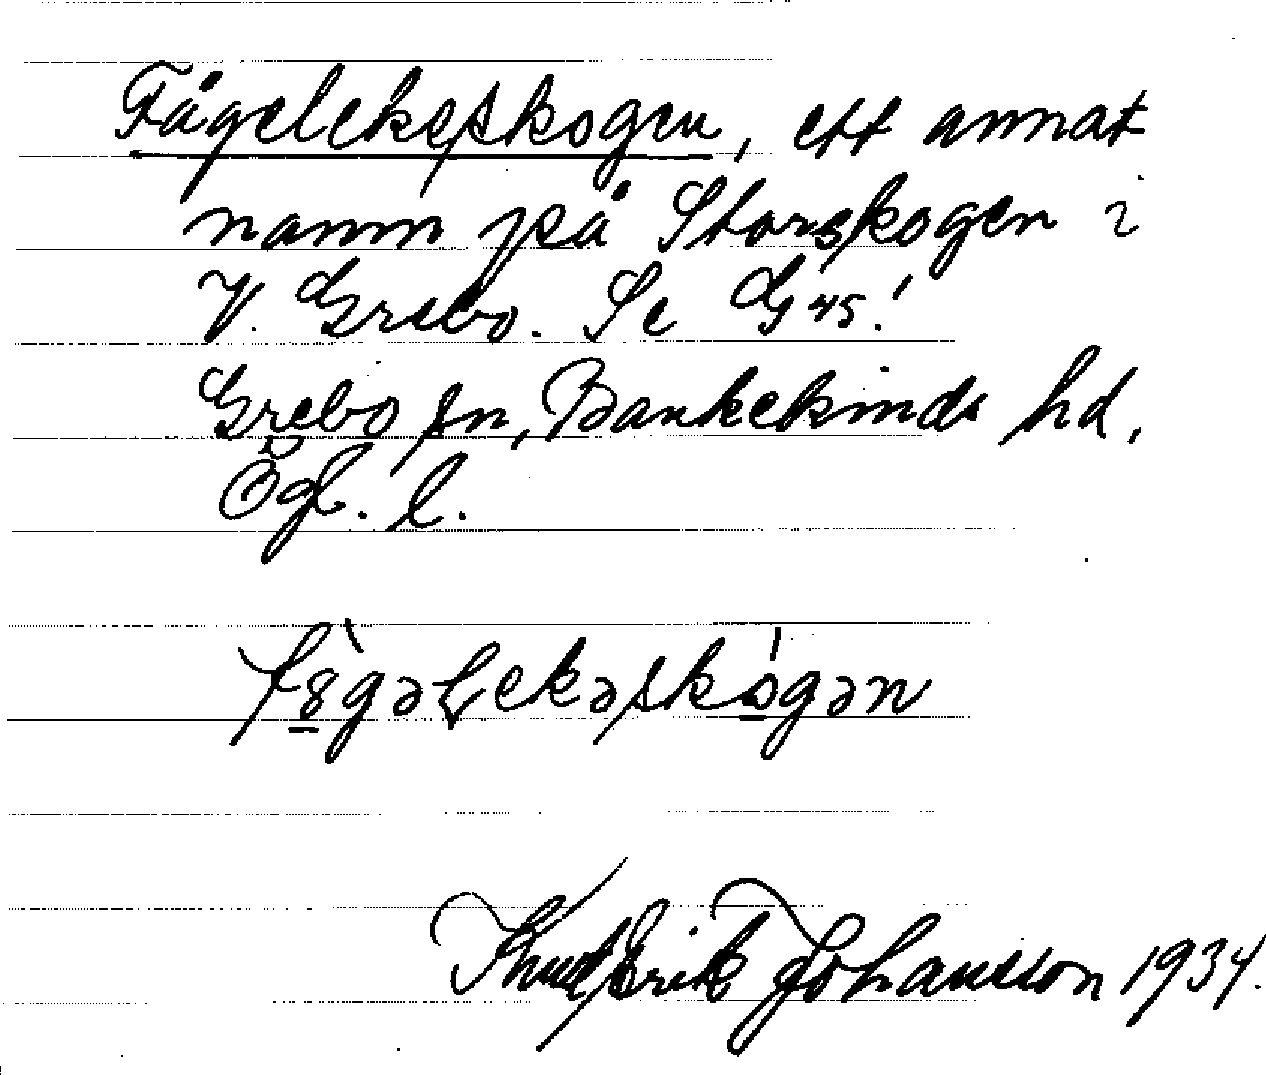 Fågelekeskogen, ett annat
namn på Storskogen i
V. Grebo. Se G 45!
Grebo sn, Bankekinds hd,
Ögl. l.
Knut Erik Johansson 1934.